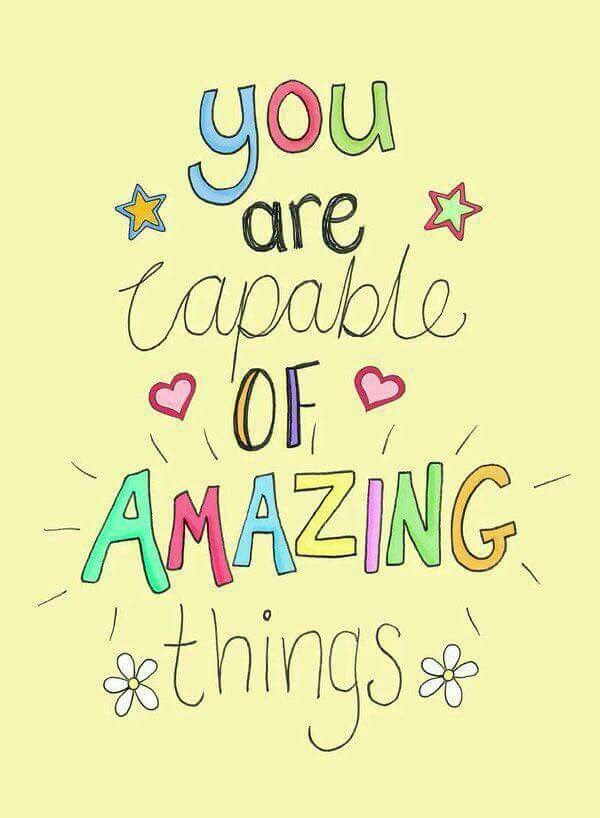 you
are
capable
OF
AMAZING
things